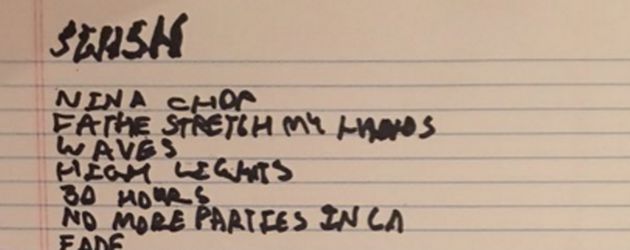 SWISH
NINA CHOP
FATHE STRETCH MY HANDS
WAVES
HIGH LIGHTS
30 HOURS
NO MORE PARTIES IN LA
FADE